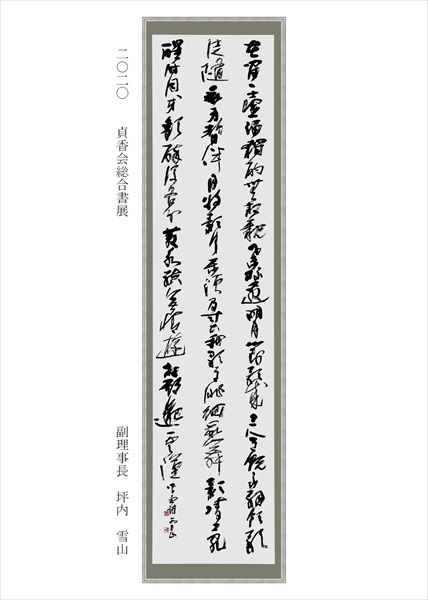 花間一壺酒獨酌無相親舉杯邀明月對影成三人月既不解飲影
徒隨我身暫伴月將影行樂須及春我歌月徘徊我舞影凌亂
醒時同交歡醉後各分散永結無情遊相期邈雲漢 李白詩 雪山
二〇二〇 貞香会総合書展
副理事長 坪内 雪山